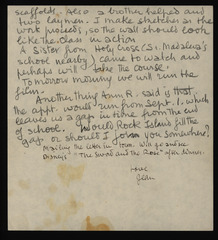 scaffolds. Also a brother helped and
two laymen. I make sketches as the
work proceeds, so the wall should look
like the class in action
A Sister from Holy Cross (St. Madalena's
school nearby) came to watch and
perhaps will take the course.
Tomorrow morning we will run the
film.
Another thing Ann R. said is that
the appt. would run from Sept. 1, which
leaves us a gap in time from the end
of school. Would Rock Island fill the
gap or should I join you somewhere?
Mailing the letter in town. Will go and see
Disney's "The Sword and the Rose" after dinner.
Love
Jean